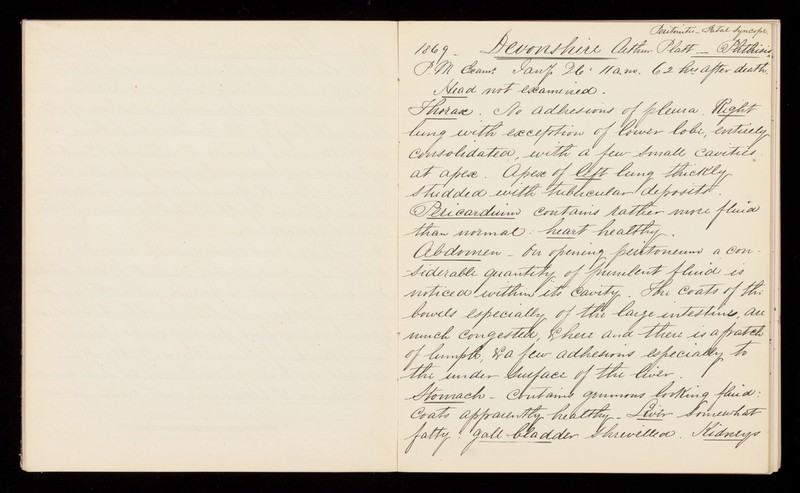 Peritonitis - Fatal Syncope
1869 - Devonshire Arthur Platt - Phthisis.
P.M. Exam. Jany. 26. 11 a.m. 62 hrs after death.
Head not examined.
Thorax. No adhesions of pleura. Right
lung with exception of lower lobe, entirely
consolidated, with a few small cavities
at apex. Apex of left lung thickly
studded with tubercular deposits.
Pericardium contains rather more fluid
than normal: heart healthy.
Abdomen - On opening peritoneum a con-
-siderable quantity of purulent fluid is
noticed within its cavity. The coats of the
bowels especially of the large intestines, are
much congested, & here and there is a patch
of lymph, & a few adhesions especially to
the under surface of the liver.
Stomach - contains grumous looking fluid:
coats apparently healthy - Liver somewhat
fatty: gall-bladder shrivelled. Kidneys